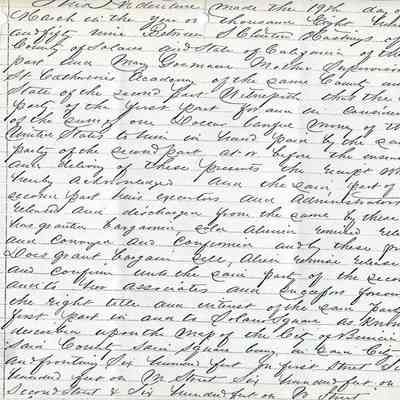 This Indenture made the 19th day
March in the year one thousand Eight hund
and fifty nine Between S Clinton Hastings of
County of Solano and State of California of the
part and Mary Goemaere Mother Superioress
St Catherines Academy of the same County and
State of the second part Witnesseth that the
party of the first part for and in consider
of the sum of one Dollar lawful money of the
United States to him in hand paid by the said
party of the second part at or before the enseal
and delivery of these presents the receipt wh
hereby acknowledged and the said part of
second part heirs executors and administrators
released and discharged from the same by these
has granted bargained, sold aliened remised rele
and conveyed and confirmed and by these pre
Does grant bargain sell, alien remise release
and confirm unto the said party of the secon
and to her associates and successors forever
the right title and interest of the said party
first part in and to Solano Square as known
described upon the map of the City of Benicia
said County said square being in said City
and fronting Six hundred feet on first Street Six
hundred feet on M Street Six hundred feet on
Second Street & Six hundred feet on N Street